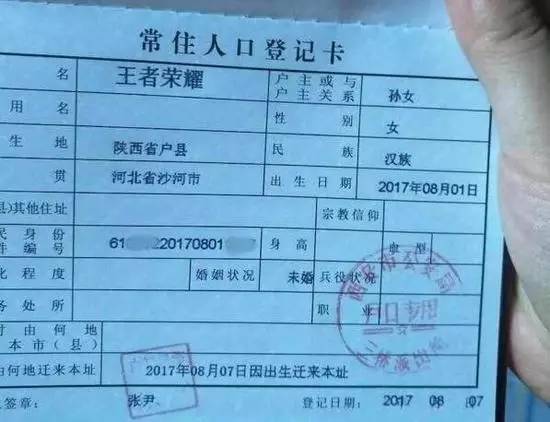 常住人口登记卡
名 王者荣耀 户主或与户主关系 孙女
用名 性别 女
生地 陕西省户县 民族 汉族
贯 河北省沙河市 出生日期 2017年08月01日
县)其他住址 宗教信仰
民身份件编号 61 220170801 身高 血型
化程度 婚姻状况 未婚 兵役状况
务处所 职业
由何地本市(县)
何地迁来本址 2017年08月07日因出生迁来本址
签章: 张尹 登记日期: 2017 08 07
户口专用